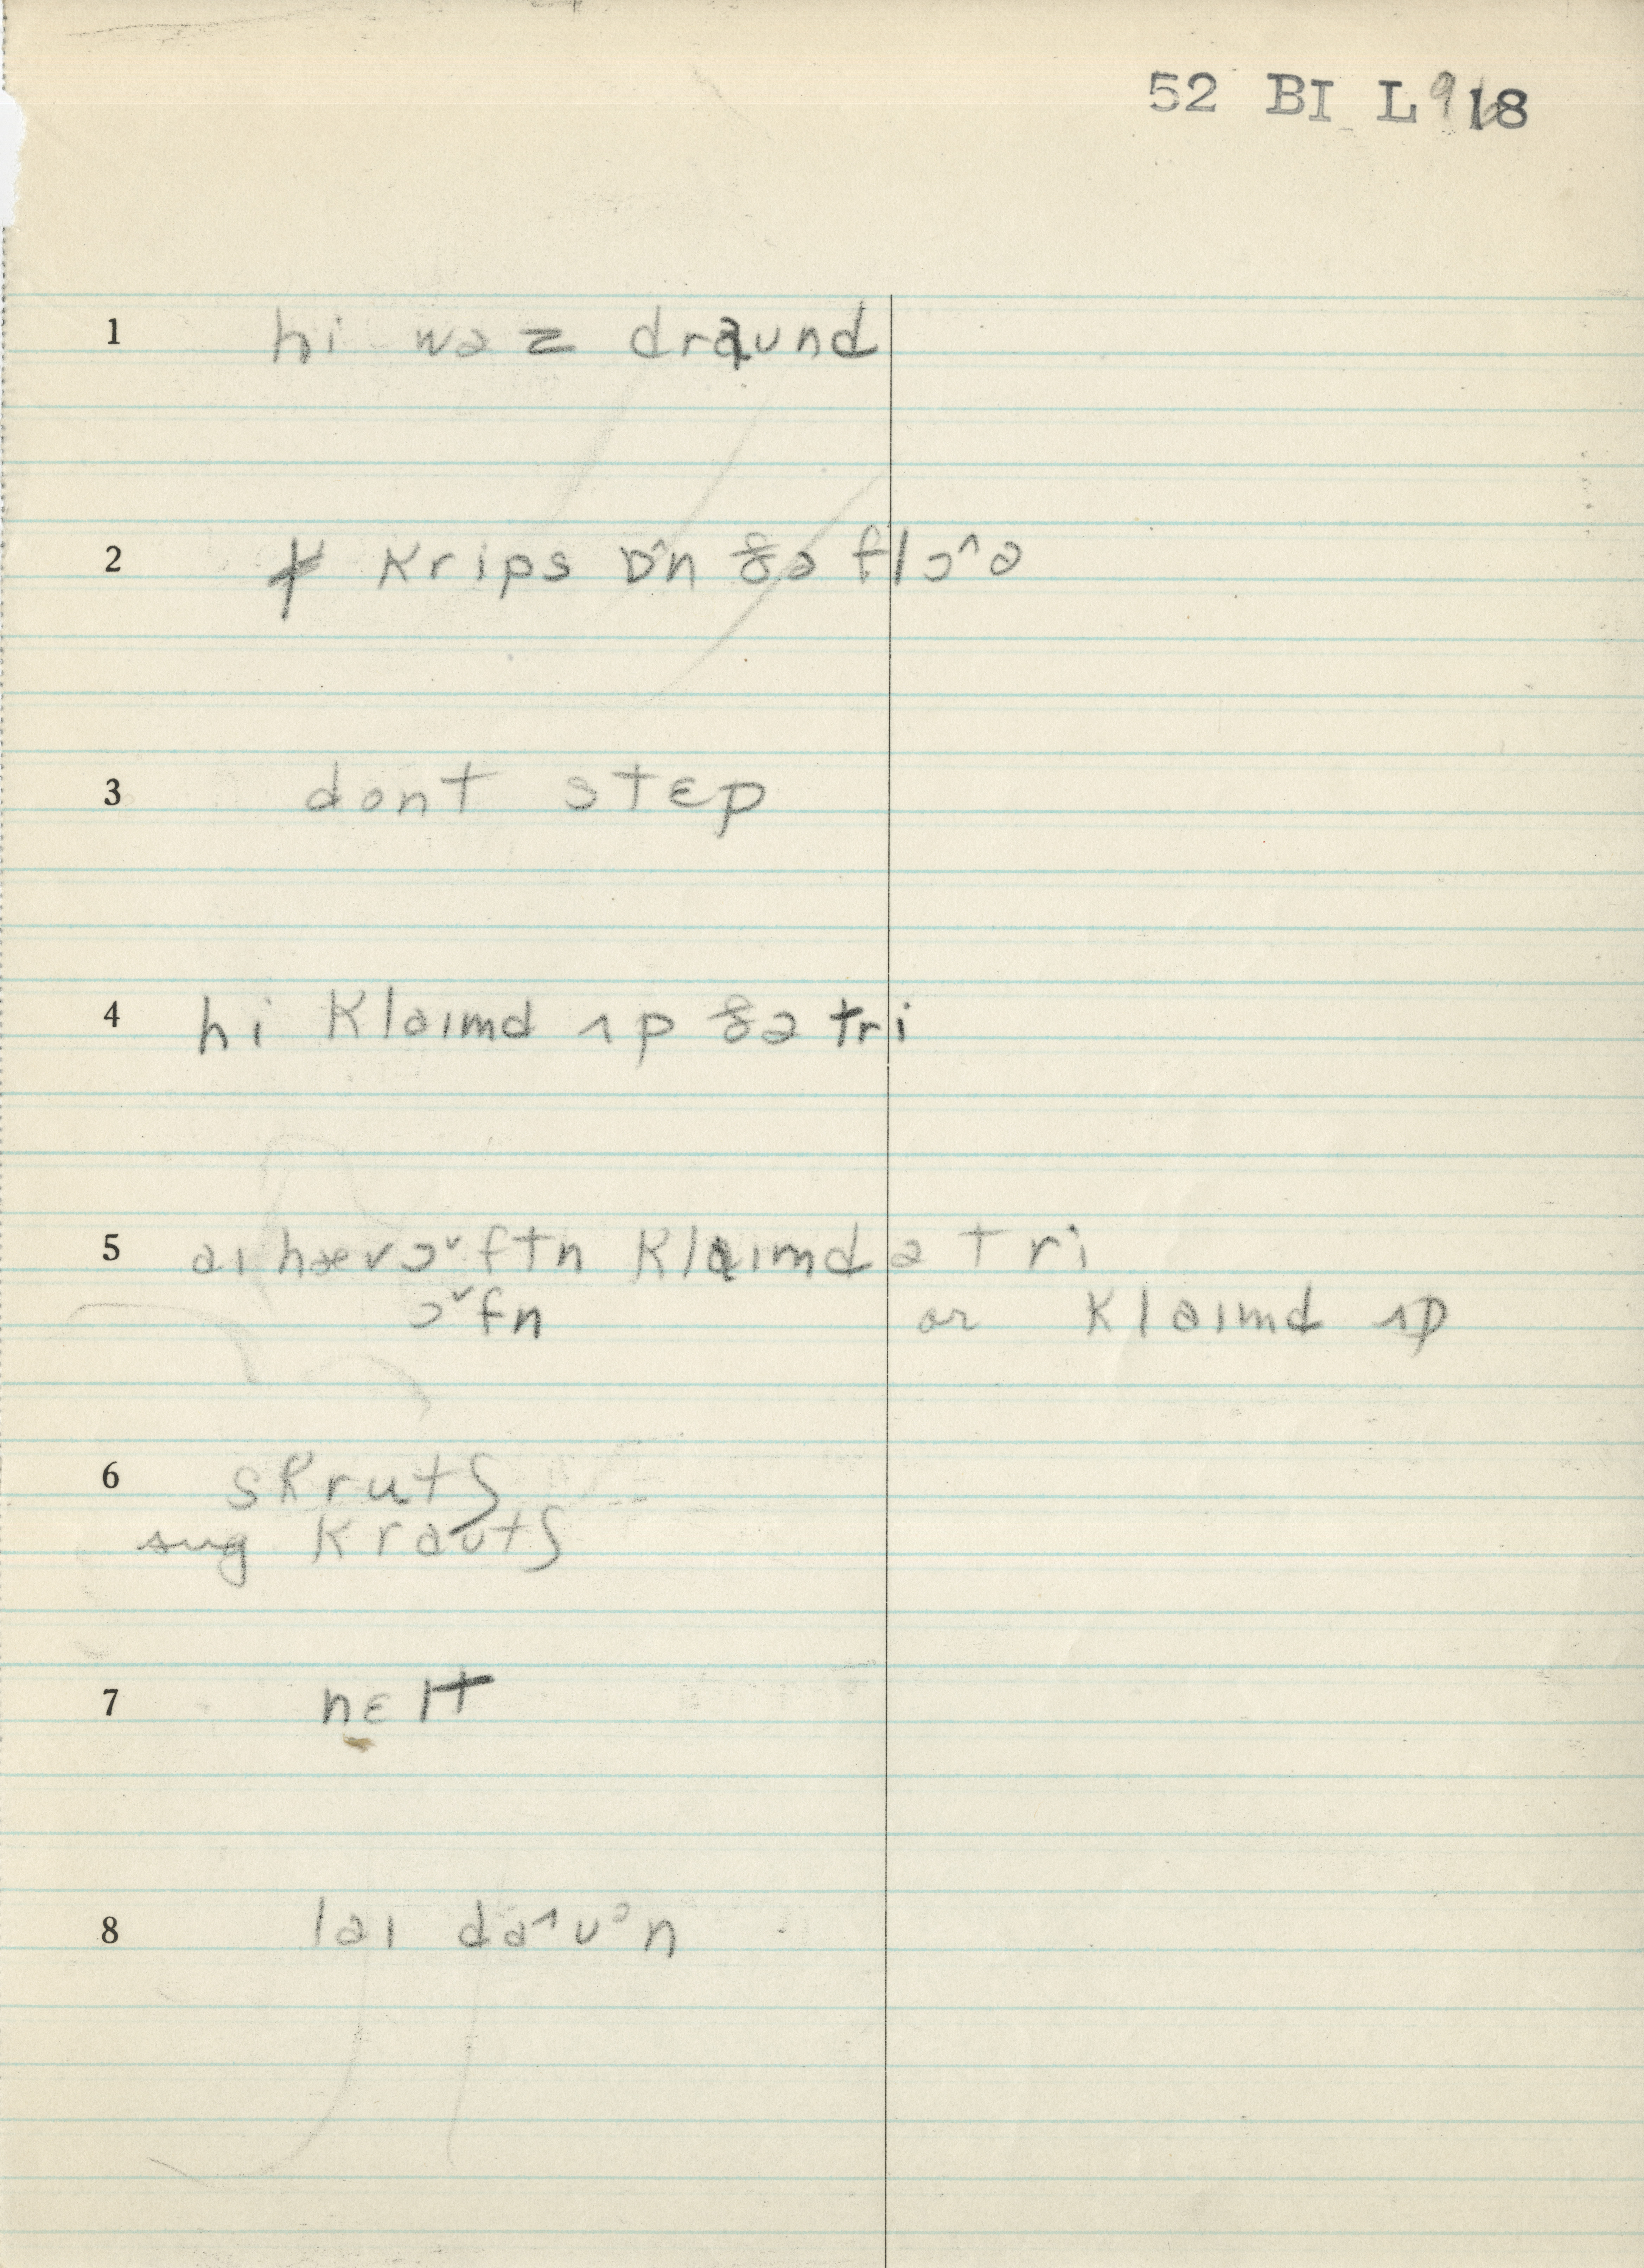 52 BI L 918
1 hi wəz draund
2 ɟ krips ɒ^n ðə flɔ^ə
3 dont stɛp
4 hi klaımd ʌp ðə tri
5 aı hæv ɔˇftn klaımd ə tri
ɔˇfn or klaımd ʌp
6 skrutʃ
sug krautʃ
7 nɛlt
8 laı da^uᵊn